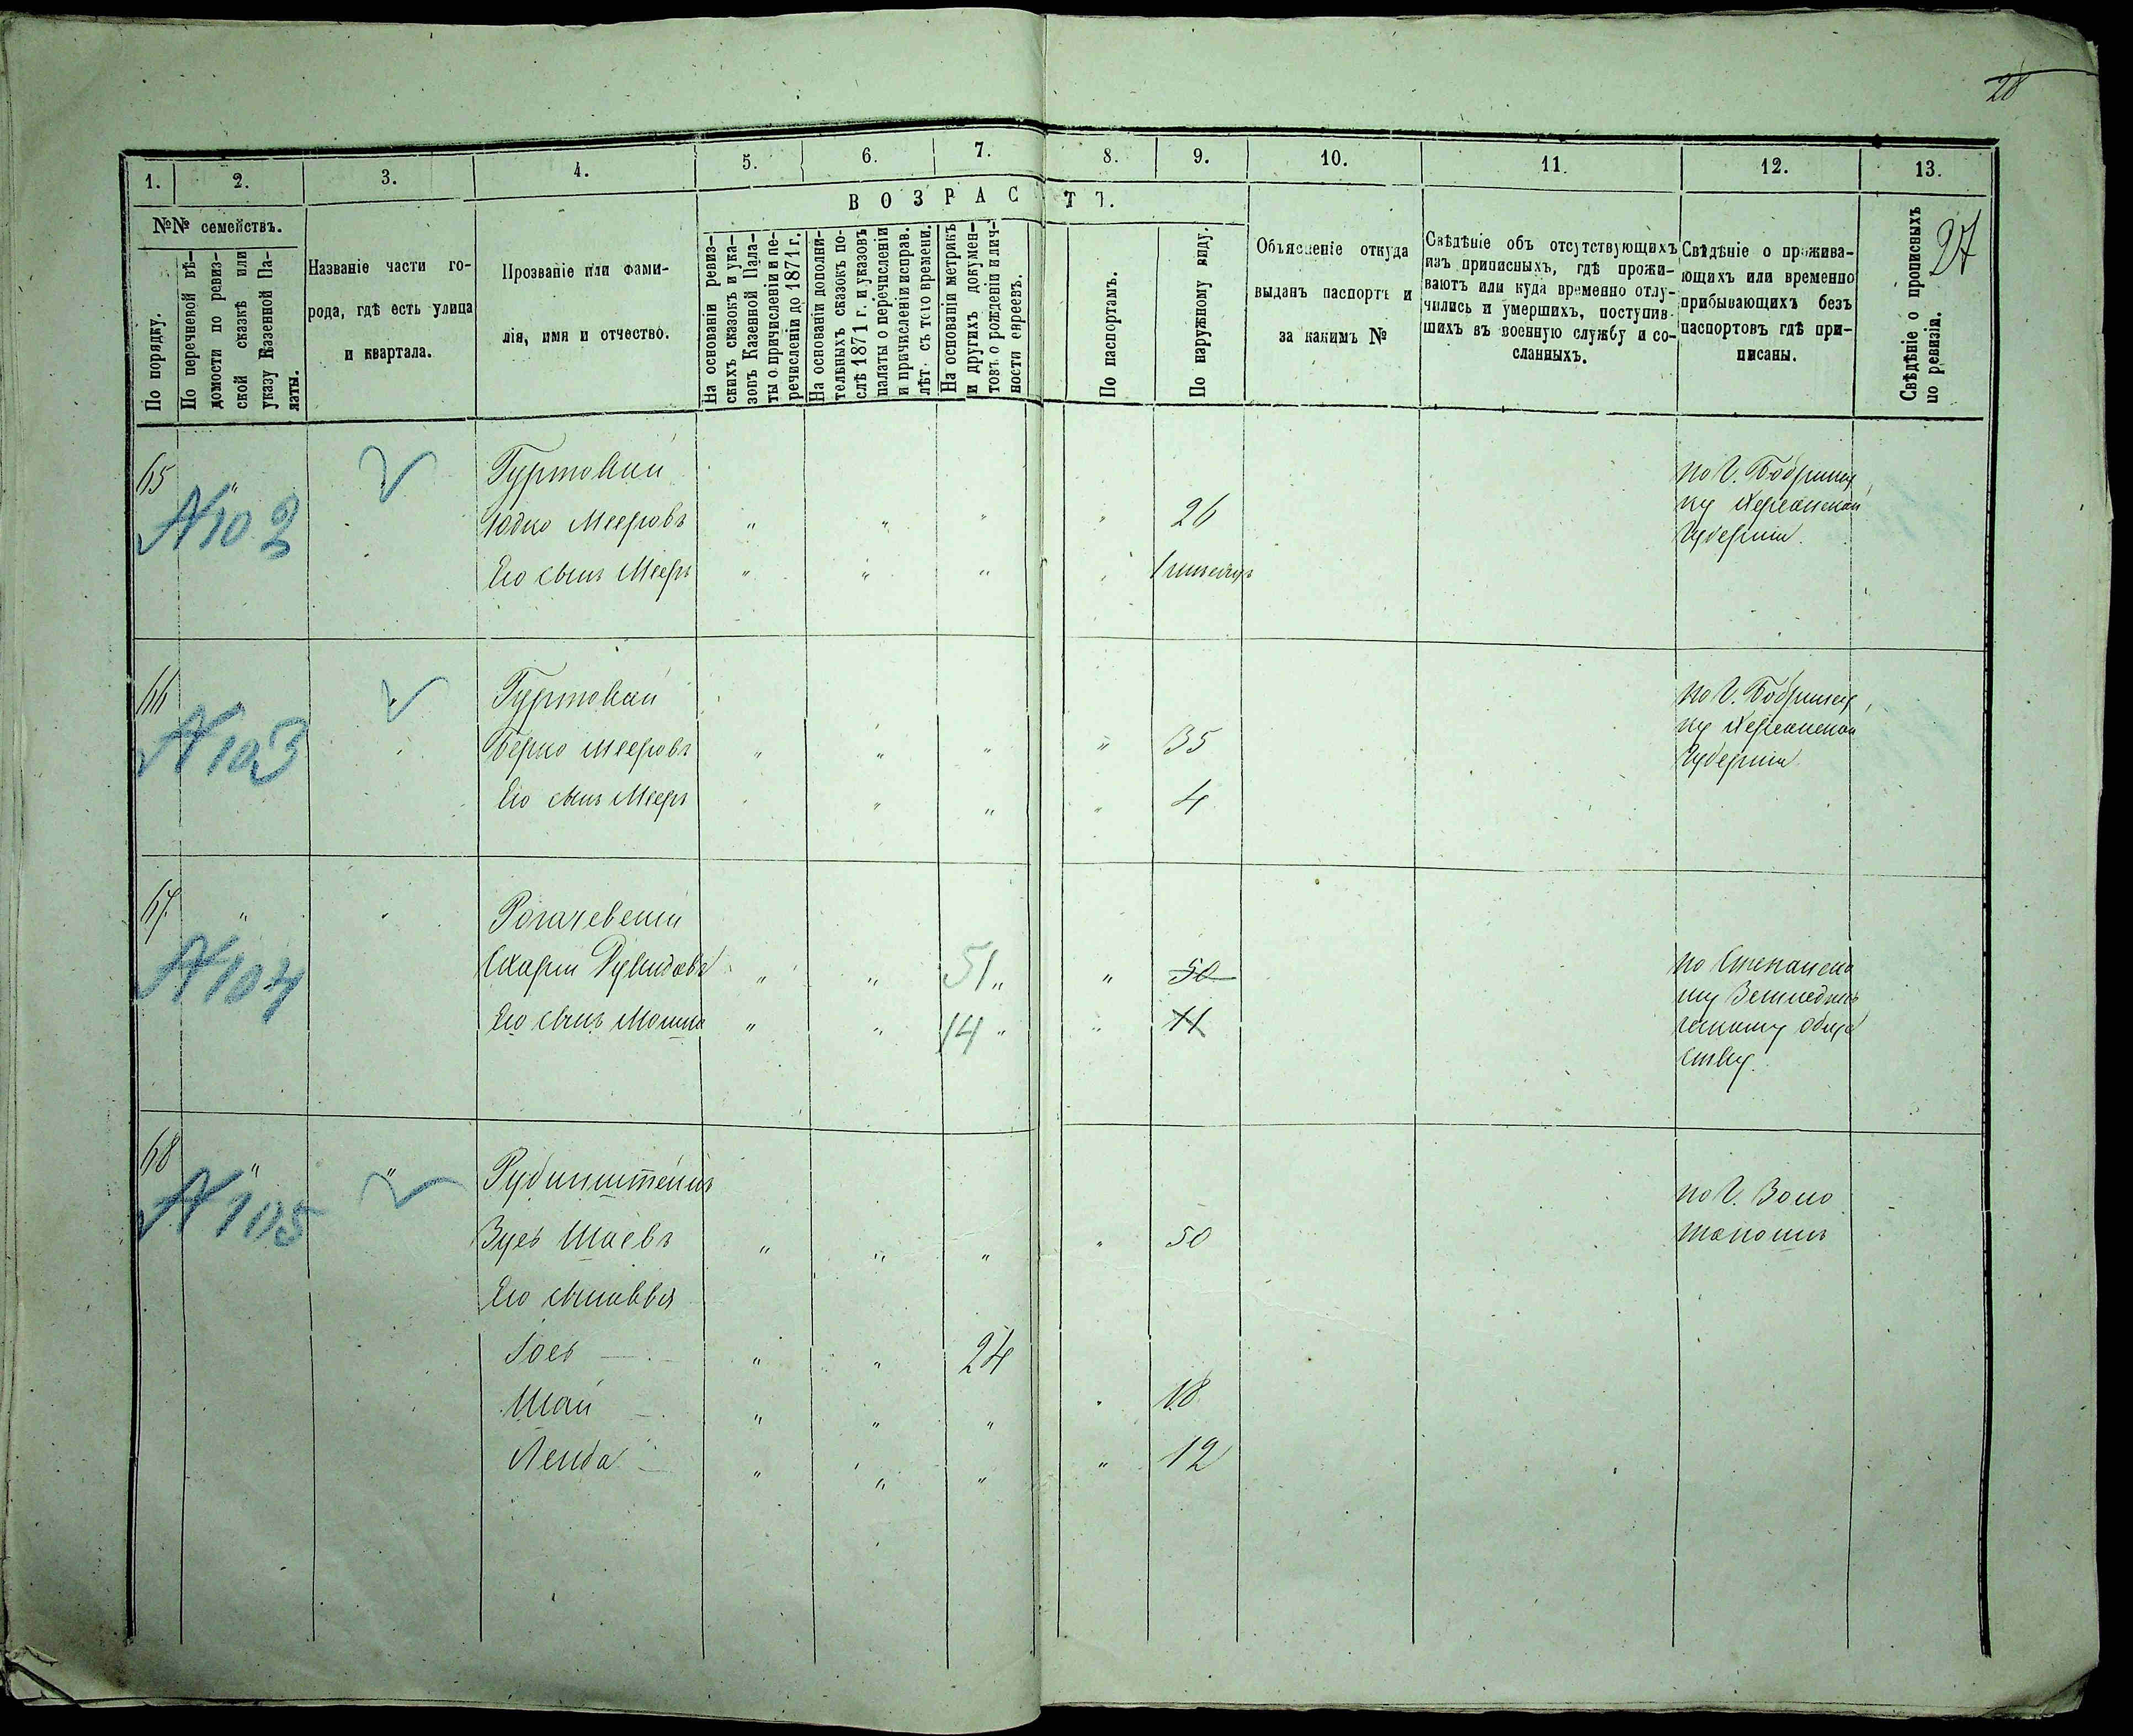 28
27
1.
2.
3.
4.
5.
6.
7.
8.
9.
10.
11.
12.
13.
ВОЗРАСТЪ.
№№ семействъ.
По порядку.
По перечневой вѣ-
домости по ревиз-
ской сказкѣ или
указу Казенной Па-
латы.
Названіе части го-
рода, гдѣ есть улица
и квартала.
Прозваніе или фами-
лія, имя и отчество.
На основаніи ревиз-
скихъ сказокъ и ука-
зовъ Казенной Пала-
ты о причисленіи и пе-
речисленіи до 1871 г.
На основаніи дополни-
тельныхъ сказокъ по-
слѣ 1871 г. и указовъ
палаты о перечисленіи
и причисленіи исправ.
лѣт. съ того времени.
На основаніи метрикъ
и другихъ докумен-
товъ о рожденіи и лич-
ности евреевъ.
По паспортамъ.
По наружному виду.
Объясненіе откуда
выданъ паспортъ и
за какимъ №
Свѣдѣніе объ отсутствующихъ
изъ приписныхъ, гдѣ прожи-
ваютъ или куда временно отлу-
чились и умершихъ, поступив-
шихъ въ военную службу и со-
сланныхъ.
Свѣдѣніе о прожива-
ющихъ или временно
прибывающихъ безъ
паспортовъ гдѣ при-
писаны.
Свѣдѣніе о прописныхъ
по ревизіи.
65 " Гуртовый по г. Бобринц
N 102 Юдко Мееровъ " " " " 26 ку Херсонской
Губерніи.
Его сынъ Мееръ " " " "
66 Гуртовый по г. Бобринц
N 103 Берко Мееровъ " " " " 35 ку Херсонской
Губерніи
Его сынъ Мееръ " " " " 4
67 " Рогачевскій
N 104 Рувидовъ " " 51 " " 50
Его сынъ Мошка " " 14 " " 11
обще
ству.
68 " " Рубинштейнъ по г. Золо
N 105 Зусь Шаевъ " " " " 50 тоношѣ
Его сыновья
Іось " " 24
Шая " " " " 18
Лейба " " " " 12